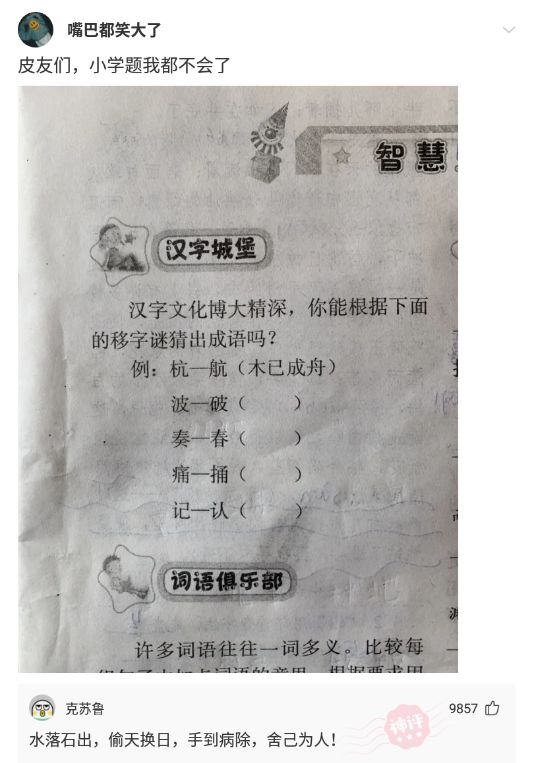 嘴巴都笑大了
皮友们，小学题我都不会了
智慧
汉字城堡
汉字文化博大精深，你能根据下面
的移字谜猜出成语吗？
例：杭—航（木已成舟）
波—破（　　）
奏—春（　　）
痛—捅（　　）
记—认（　　）
词语俱乐部
许多词语往往一词多义。比较每
克苏鲁
9857
神评
水落石出，偷天换日，手到病除，舍己为人！